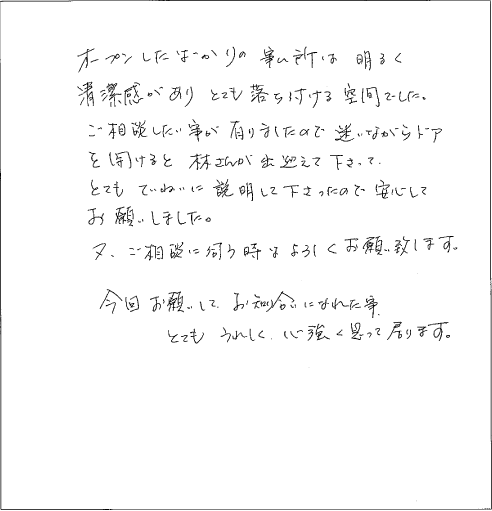 オープンしたばかりの事ム所は 明るく
清潔感があり とても落ち付ける空間でした。
ご相談したい事が有りましたので 迷いながらドア
を開けると 林さんが出迎えて下さって、
とても ていねいに説明して下さったので 安心して
お願いしました。
又、ご相談に伺う時はよろしくお願い致します。
今回お願いして、お知合いになれた事、
とても うれしく、心強く思って居ります。